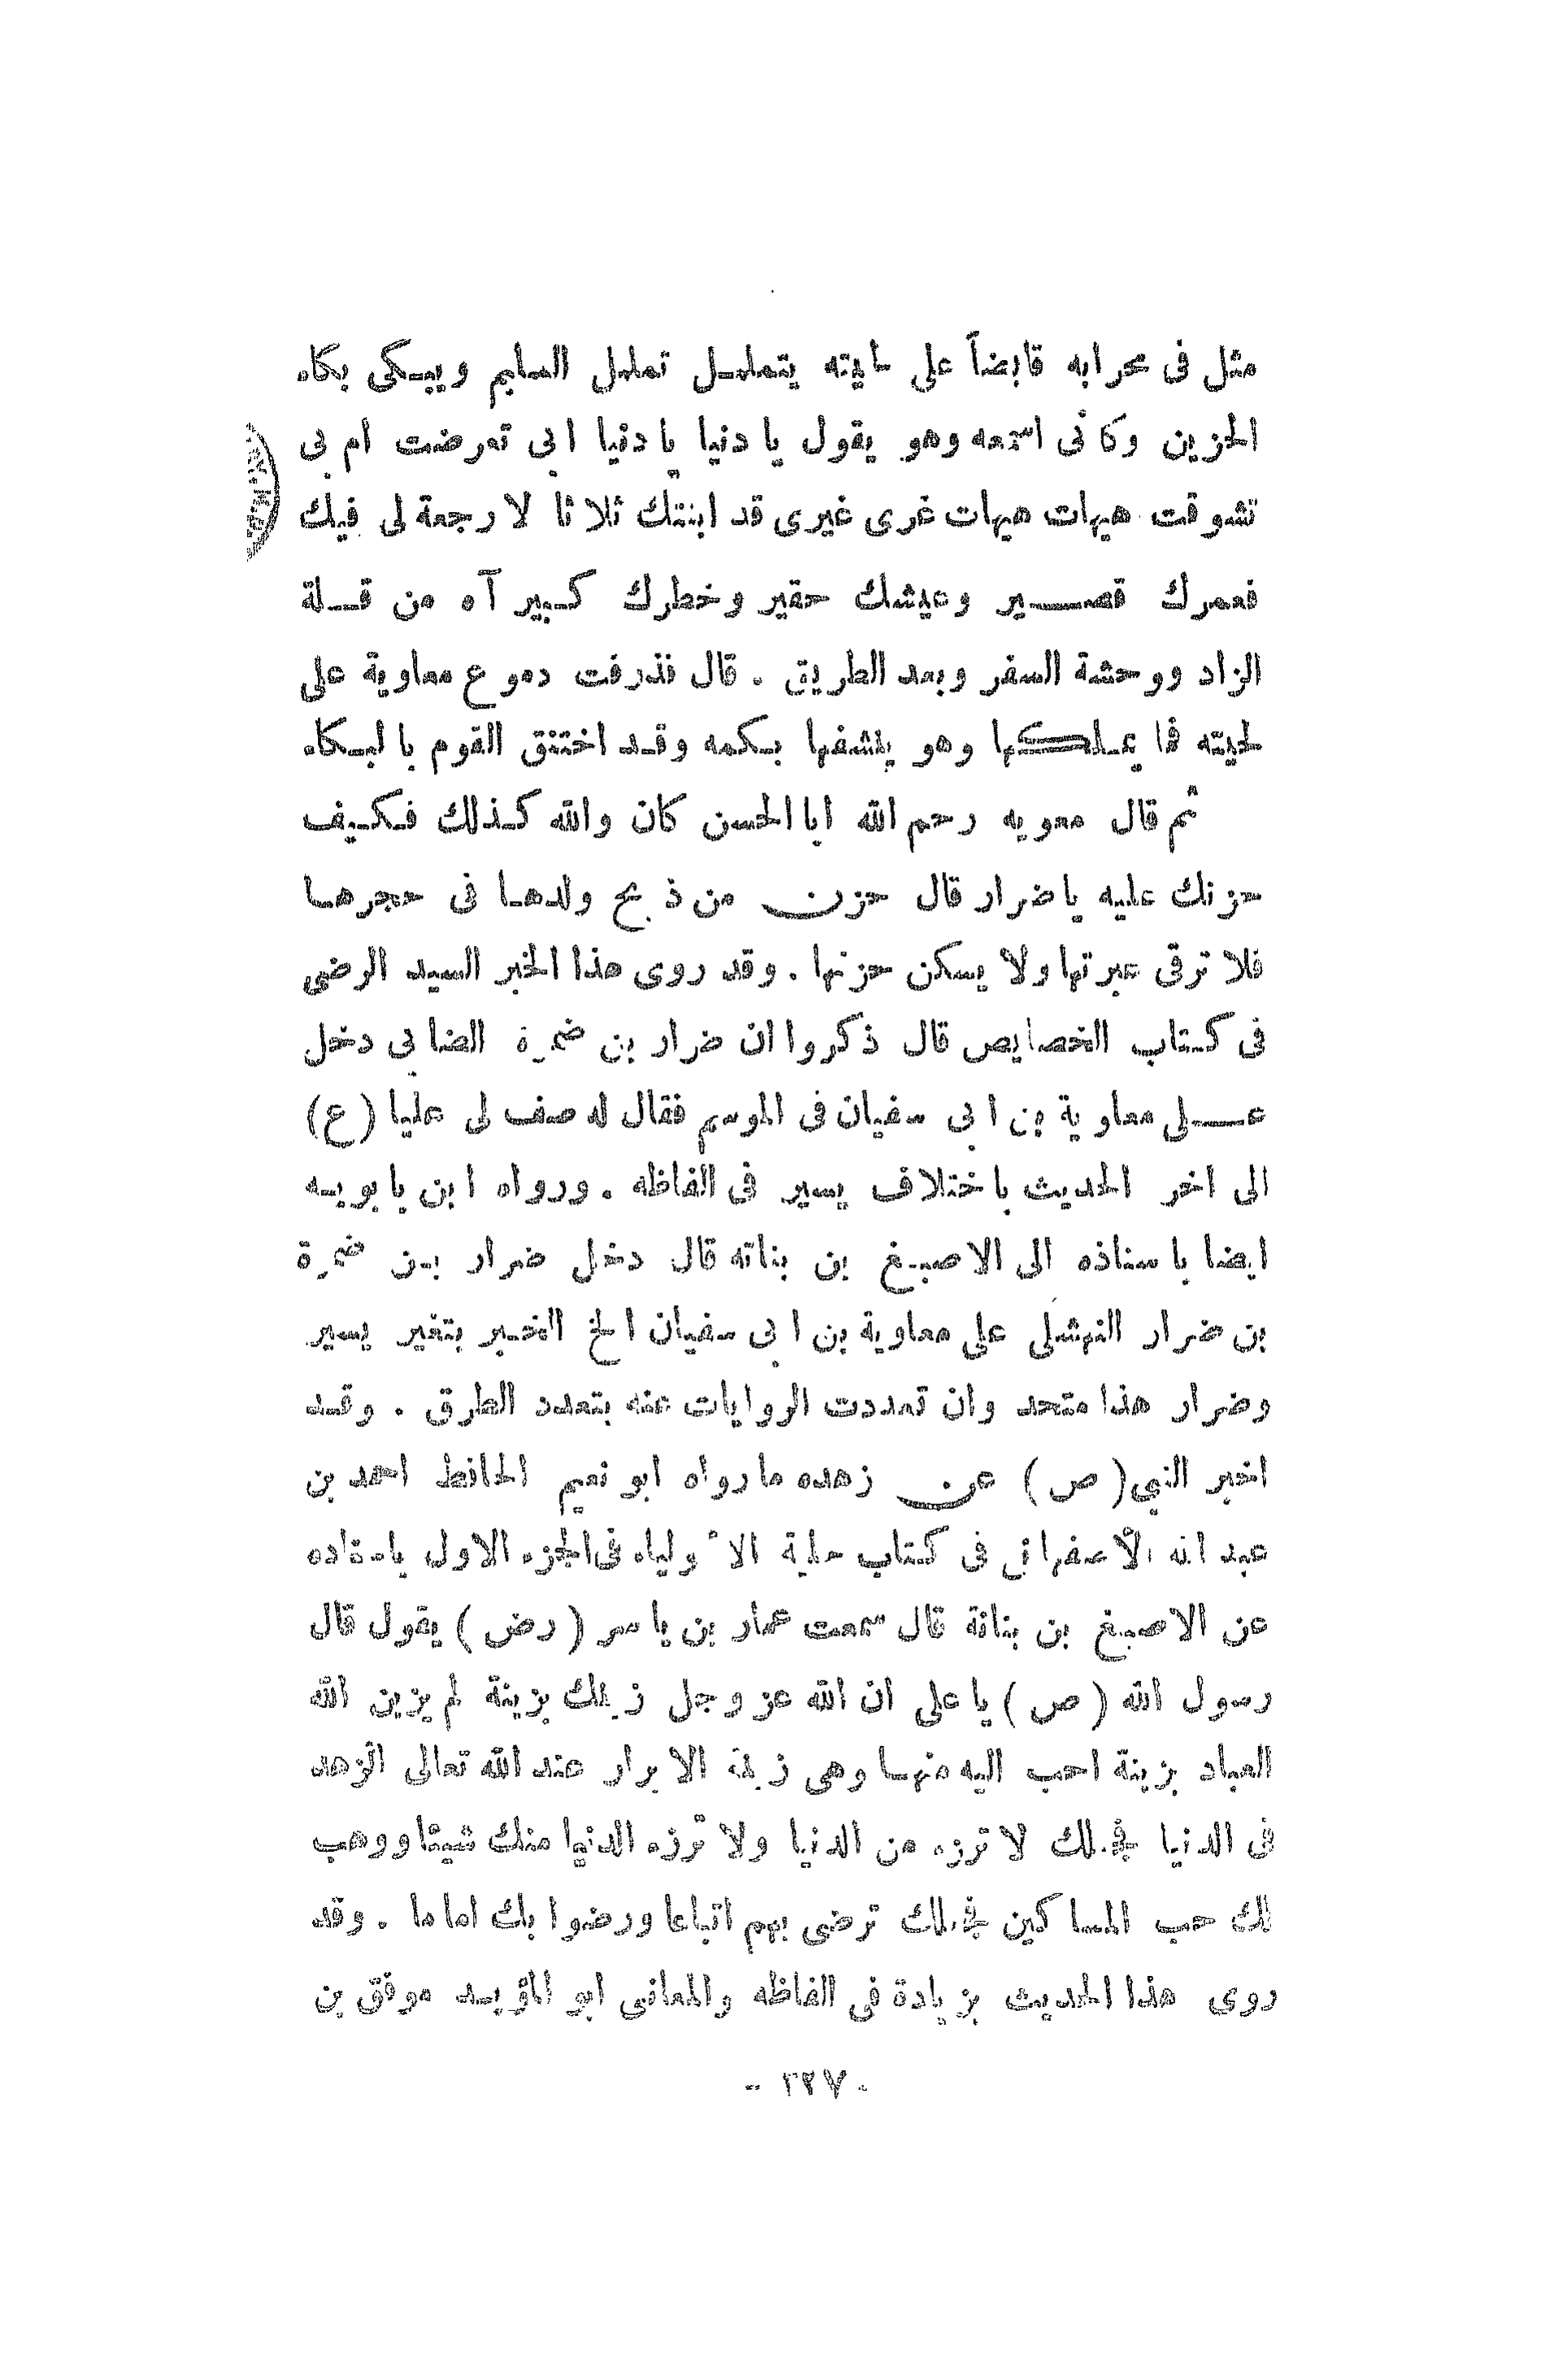 مثل فى محرابه قابضاً على لحيته يتململ تململ السليم ويبكى بكاء
الحزين وكأنى اسمعه وهو يقول يا دنيا يا دنيا ابى تعرضت ام بى
تشوقت هيهات هيهات غرى غيرى قد ابنتك ثلاثا لا رجعة لى فيك
فعمرك قصير وعيشك حقير وخطرك كبير آه من قلة
الزاد ووحشة السفر وبعد الطريق . قال فذرفت دموع معاوية على
لحيته فما يملكها وهو ينشفها بكمه وقد اختنق القوم بالبكاء
ثم قال معويه رحم الله ابا الحسن كان والله كذلك فكيف
حزنك عليه يا ضرار قال حزن من ذبح ولدها فى حجرها
فلا ترقى عبرتها ولا يسكن حزنها . وقد روى هذا الخبر السيد الرضى
فى كتاب الخصايص قال ذكروا ان ضرار بن ضمرة الضابى دخل
على معاوية بن ابى سفيان فى الموسم فقال له صف لى عليا (ع)
الى اخر الحديث باختلاف يسير فى الفاظه . ورواه ابن بابويه
ايضا باسناذه الى الاصبغ بن بناته قال دخل ضرار بن ضمرة
بن ضرار النهشلى على معاوية بن ابى سفيان الخ الخبر بتغير يسير
وضرار هذا متحد وان تعددت الروايات عنه بتعدد الطرق . وقد
اخبر النبي (ص) عن زهده ما رواه ابو نعيم الحافظ احمد بن
عبد الله الأصفهانى فى كتاب حلية الأولياء فى الجزء الاول باسناده
عن الاصبغ بن بناتة قال سمعت عمار بن ياسر (رض) يقول قال
رسول الله (ص) يا على ان الله عز وجل زينك بزينة لم يزين الله
العباد بزينة احب اليه منها وهى زينة الابرار عند الله تعالى الزهد
فى الدنيا فجعلك لا ترزء من الدنيا ولا ترزء الدنيا منك شيئا ووهب
لك حب المساكين فجعلك ترضى بهم اتباعا ورضوا بك اماما . وقد
روى هذا الحديث بزيادة فى الفاظه والمعانى ابو المؤيد موفق بن
- ٢٢٧ -